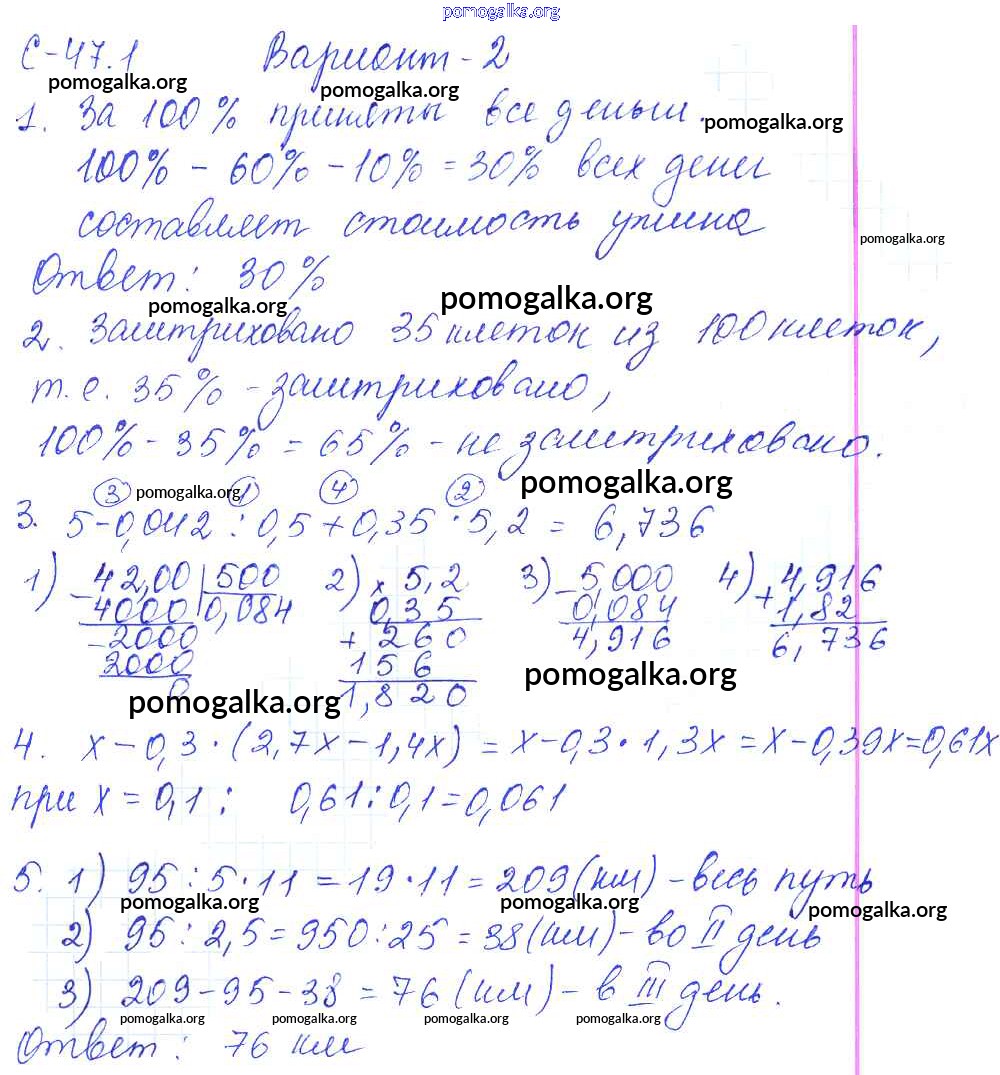 pomogalka.org
С-47.1 Вариант-2
pomogalka.org pomogalka.org
1. За 100% приняты все деньги.
pomogalka.org
100% - 60% - 10% = 30% всех денег
составляет стоимость ужина
pomogalka.org
Ответ: 30%
pomogalka.org pomogalka.org
2. Заштриховано 35 клеток из 100 клеток,
т.е. 35% - заштриховано,
100% - 35% = 65% - не заштриховано.
pomogalka.org
3 pomogalka.org 1 4 2
3. 5-0,042 : 0,5 + 0,35 · 5,2 = 6,736
1) 42,00 500 2) 5,2 3) 5,000 4) 4,916
- 4000 0,084 × 0,35 - 0,084 + 1,82
- 2000 + 260 4,916 6,736
2000 156
0 1,820
pomogalka.org pomogalka.org
4. x - 0,3 · (2,7x - 1,4x) = x - 0,3 · 1,3x = x - 0,39x = 0,61x
при x = 0,1 : 0,61 : 0,1 = 0,061
5. 1) 95 : 5 · 11 = 19 · 11 = 209 (км) - весь путь
pomogalka.org pomogalka.org pomogalka.org
2) 95 : 2,5 = 950 : 25 = 38 (км) - во II день
3) 209 - 95 - 38 = 76 (км) - в III день.
pomogalka.org pomogalka.org pomogalka.org pomogalka.org
Ответ: 76 км